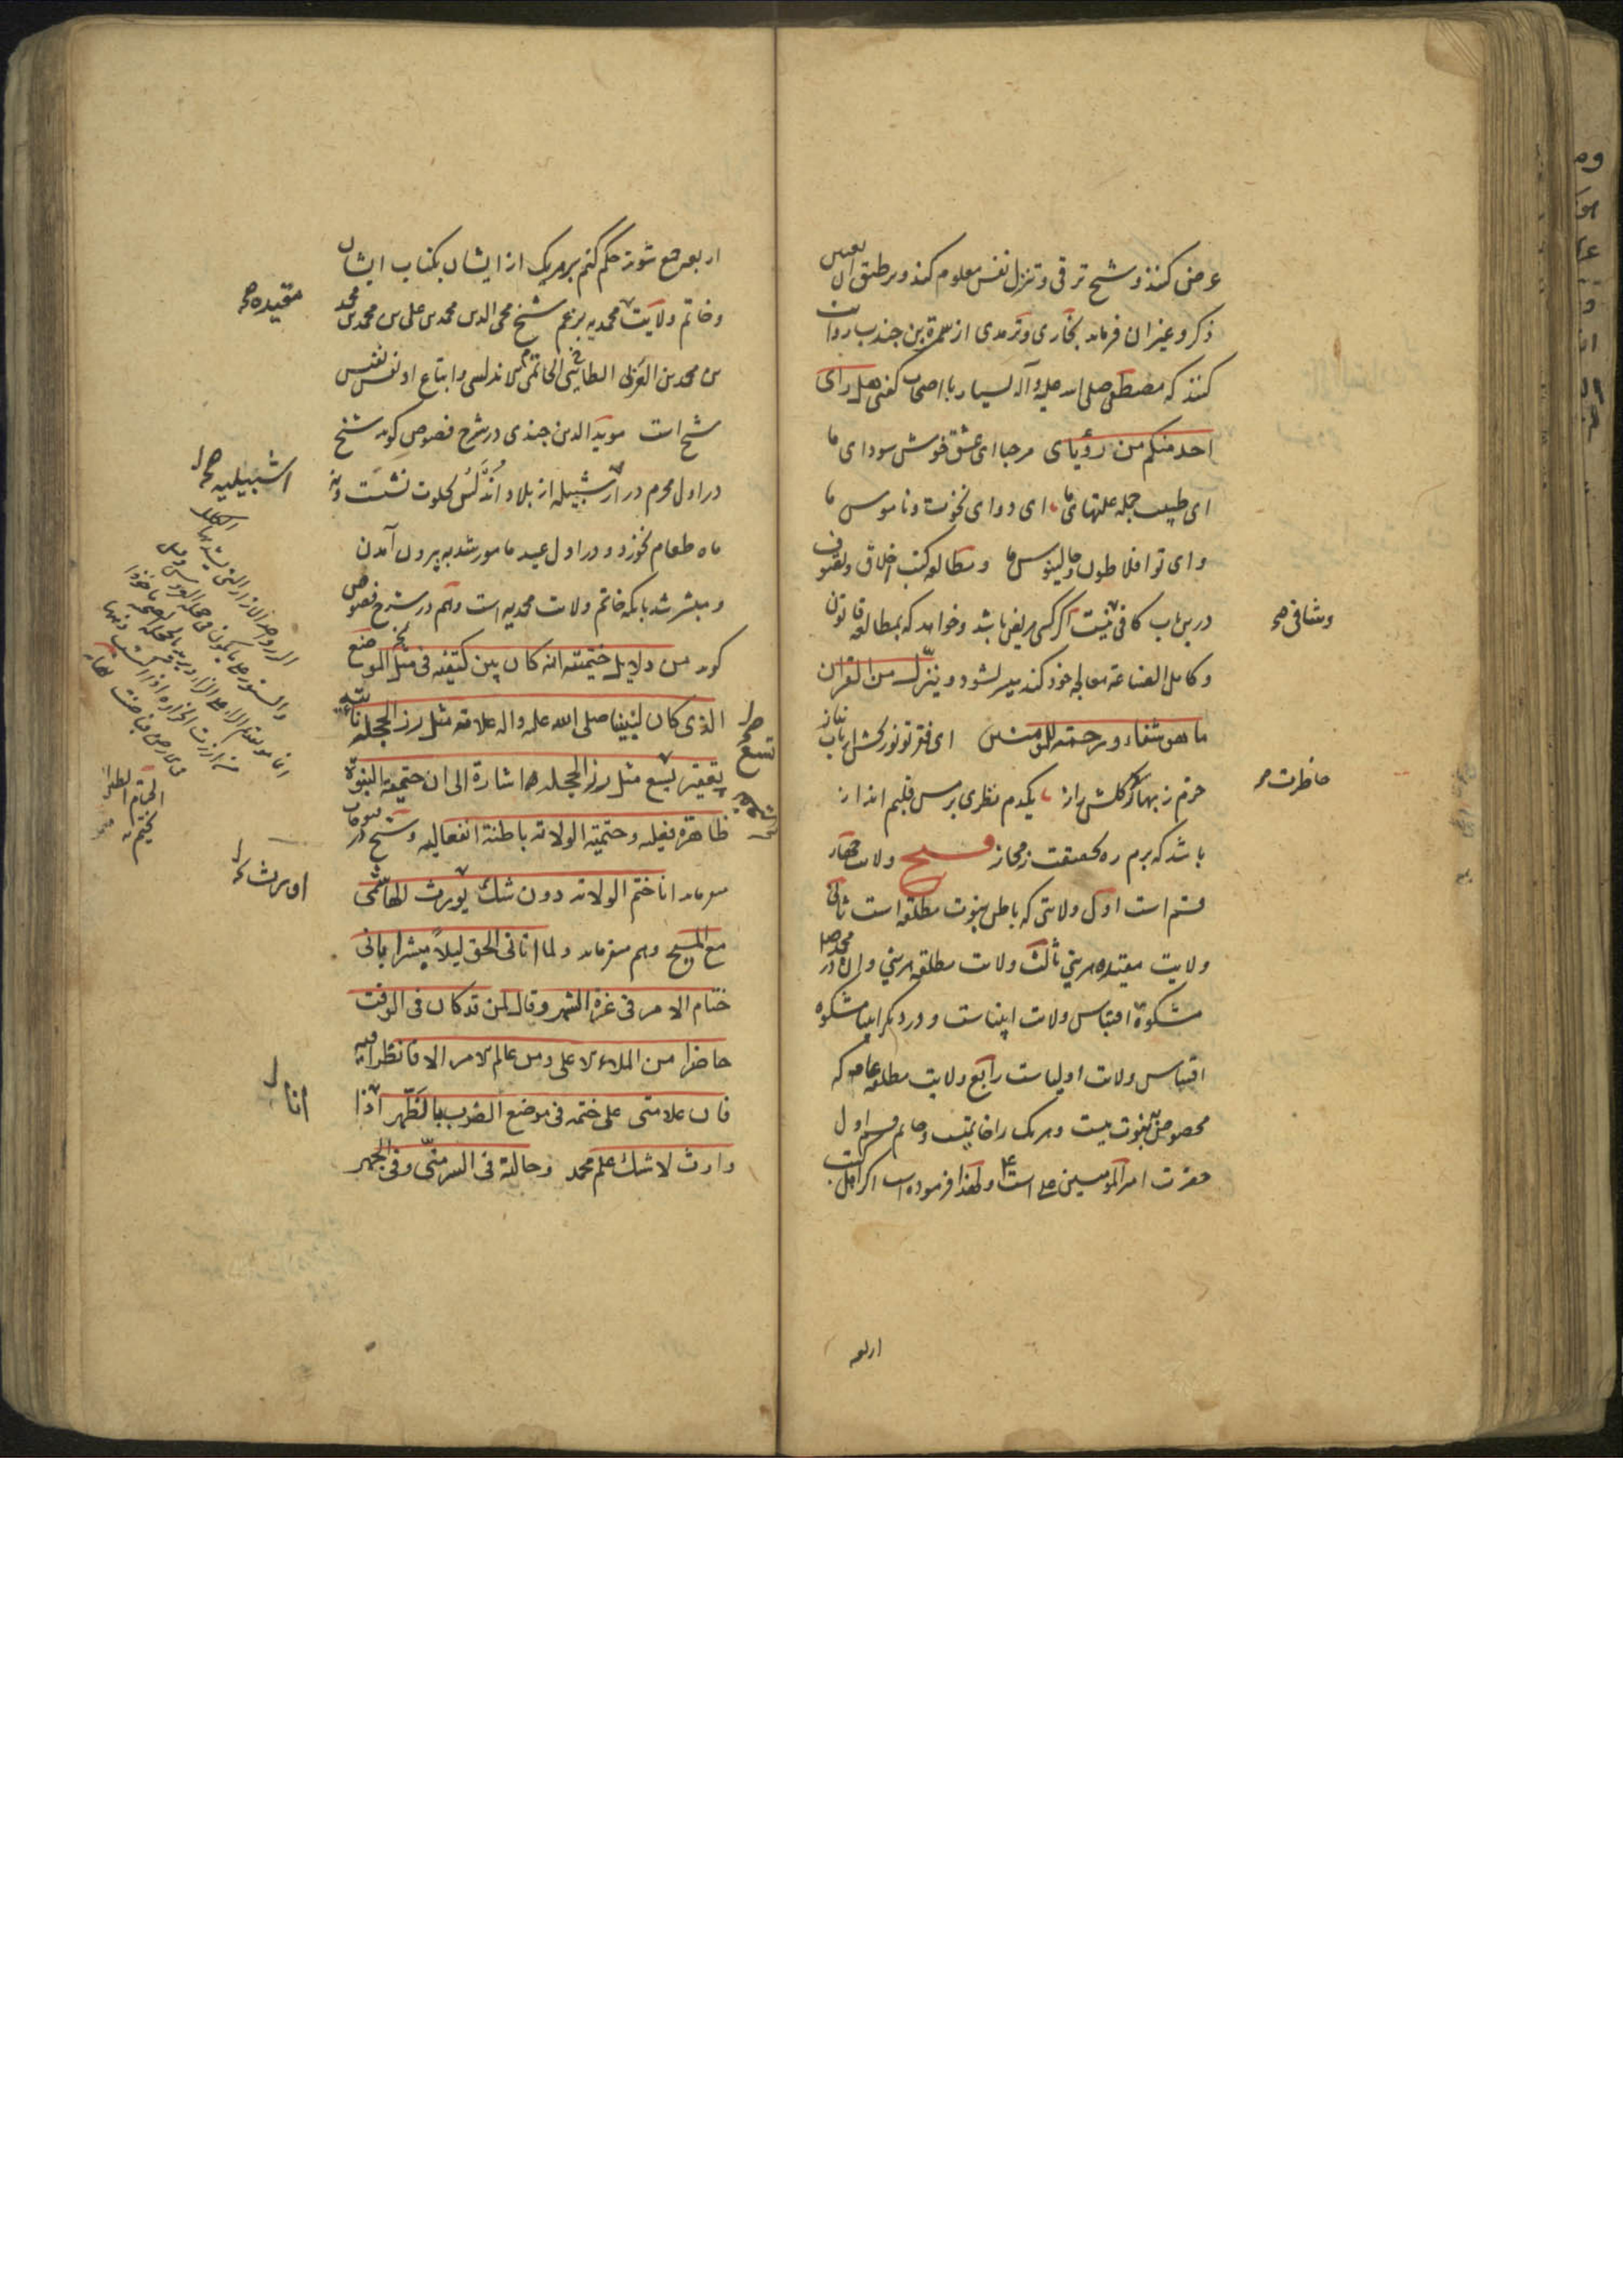 عرض کنند و شیخ ترقی و تنزل نفس معلوم کند و بر طبق آن تعیین
ذکر و غیر آن فرماید بخاری و ترمدی از سمرة بن جندب روایت
کنند که مصطفی صلی الله علیه و آله بسیار با اصحاب کفتی هل رای
احد منکم من رؤیای مرحبا ای عشق خوش سودای ما
ای طبیب جمله علتهای ما ای دوای نخوت و ناموس ما
وای تو افلاطون و جالینوس ما و مطالعه کتب اخلاق و تصوف
درین باب کافی نیست اگر کسی مریض باشد و خواهد که بمطالعه قانون
و کامل الصناعه معالجه خود کند میسر نشود و ینزل من القران
ما هو شفاء و رحمة للمومنین ای فقر تو نور بخش ارباب نیاز
خرم ز بهار کلشن راز یکدم نظری برمس قلبم انداز
باشد که برم ره بحقیقت ز مجاز فتح ولایت چهار
قسم است اول ولایتی که باطن نبوت مطلقه است ثانی
ولایت مقیده هر نبی ثالث ولایت مطلقه هر نبی و آن در محمد صلی
مشکوة اقتباس ولایت انبیاست و در دیگر انبیا مشکوه
اقتباس ولایت اولیاست رابع ولایت مطلقه عامه که
مخصوص بنبوت نیست و هر یک را خاتمیست و خاتم قسم اول
حضرت امیر المومنین علی است و لهذا فرموده است اکر اهل کتب
وشافی صح
خاطرت صح
اربعه
اربعه جمع شوند حکم کنم بر هر یک از ایشان بکتاب ایشان
و خاتم ولایت محمدیه بزعم شیخ محی الدین محمد بن علی بن محمد بن محمد
بن محمد بن العربی الطائی الحاتمی الاندلسی و اتباع او نفس نفیس
شیخ است موید الدین جندی در شرح فصوص کوید شیخ
در اول محرم در اشبیله از بلاد اندلس بخلوت نشست و نه
ماه طعام نخورد و در اول عید مامور شد به بیرون آمدن
و مبشر شد بانکه خاتم ولایت محمدیه است و هم در شرح فصوص
کوید من دلایل ختمیته انه کان بین کتفیه فی مثل الموضع
الذی کان لنبینا صلی الله علیه و اله علامة مثل زر الحجله ناتئه
یقعر تسع مثل زر الحجله اشارة الی ان ختمیة النبوة
ظاهرة فعلیه و ختمیة الولایة باطنة انفعالیه و شیخ در فتوحات
میفرماید انا ختم الولایة دون شک یورث الهاشمی
مع المسیح و هم میفرماید و لما اتانی الحق لیلا مبشرا بانی
ختام الامر فی غرة الشهر و قال لمن قد کان فی الوقت
حاضرا من الملاء الاعلی و من عالم الامر الا فانظرا فیه
فان علامتی علی ختمه فی موضع الضرب بالظهر اذا
وارث لا شک علم محمد و حالة فی السر منی و فی الجهر
مقیده صح
اشبیلیه صح
انا